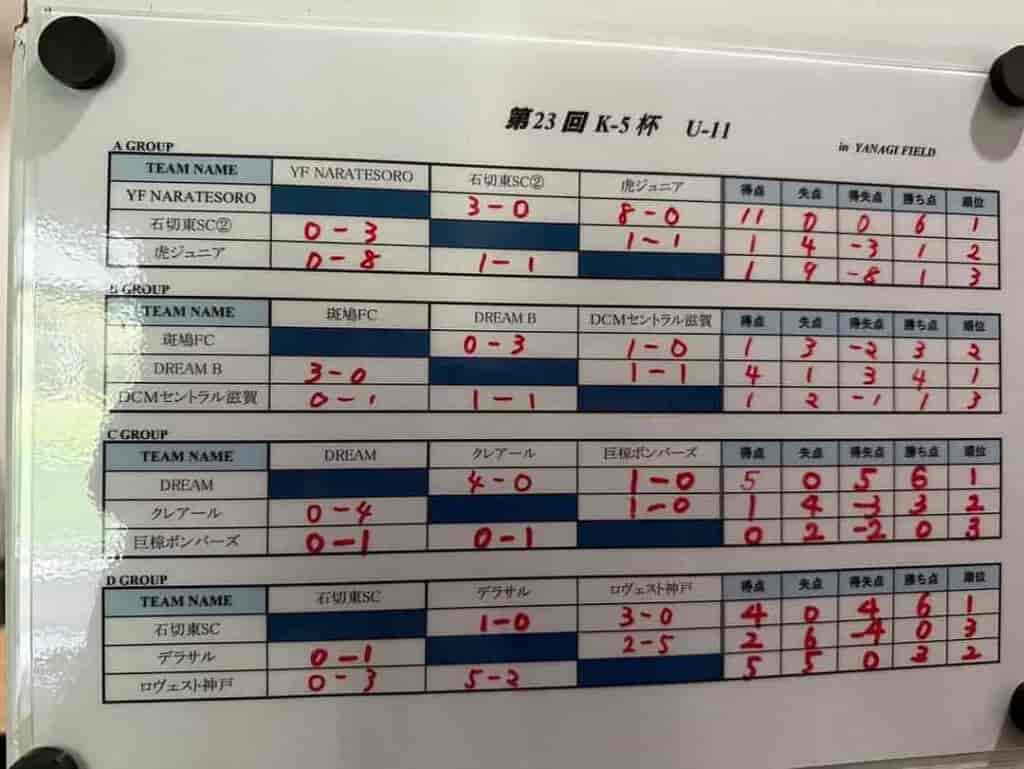 第23回 K-5杯 U-11
in YANAGI FIELD
A GROUP
TEAM NAME YF NARATESORO 石切東SC② 虎ジュニア 得点 失点 得失点 勝ち点 順位
YF NARATESORO 3-0 8-0 11 0 0 6 1
石切東SC② 0-3 1-1 1 4 -3 1 2
虎ジュニア 0-8 1-1 1 9 -8 1 3
B GROUP
TEAM NAME 斑鳩FC DREAM B DCMセントラル滋賀 得点 失点 得失点 勝ち点 順位
斑鳩FC 0-3 1-0 1 3 -2 3 2
DREAM B 3-0 1-1 4 1 3 4 1
DCMセントラル滋賀 0-1 1-1 1 2 -1 1 3
C GROUP
TEAM NAME DREAM クレアール 巨椋ボンバーズ 得点 失点 得失点 勝ち点 順位
DREAM 4-0 1-0 5 0 5 6 1
クレアール 0-4 1-0 1 4 -3 3 2
巨椋ボンバーズ 0-1 0-1 0 2 -2 0 3
D GROUP
TEAM NAME 石切東SC デラサル ロヴェスト神戸 得点 失点 得失点 勝ち点 順位
石切東SC 1-0 3-0 4 0 4 6 1
デラサル 0-1 2-5 2 6 -4 0 3
ロヴェスト神戸 0-3 5-2 5 5 0 3 2